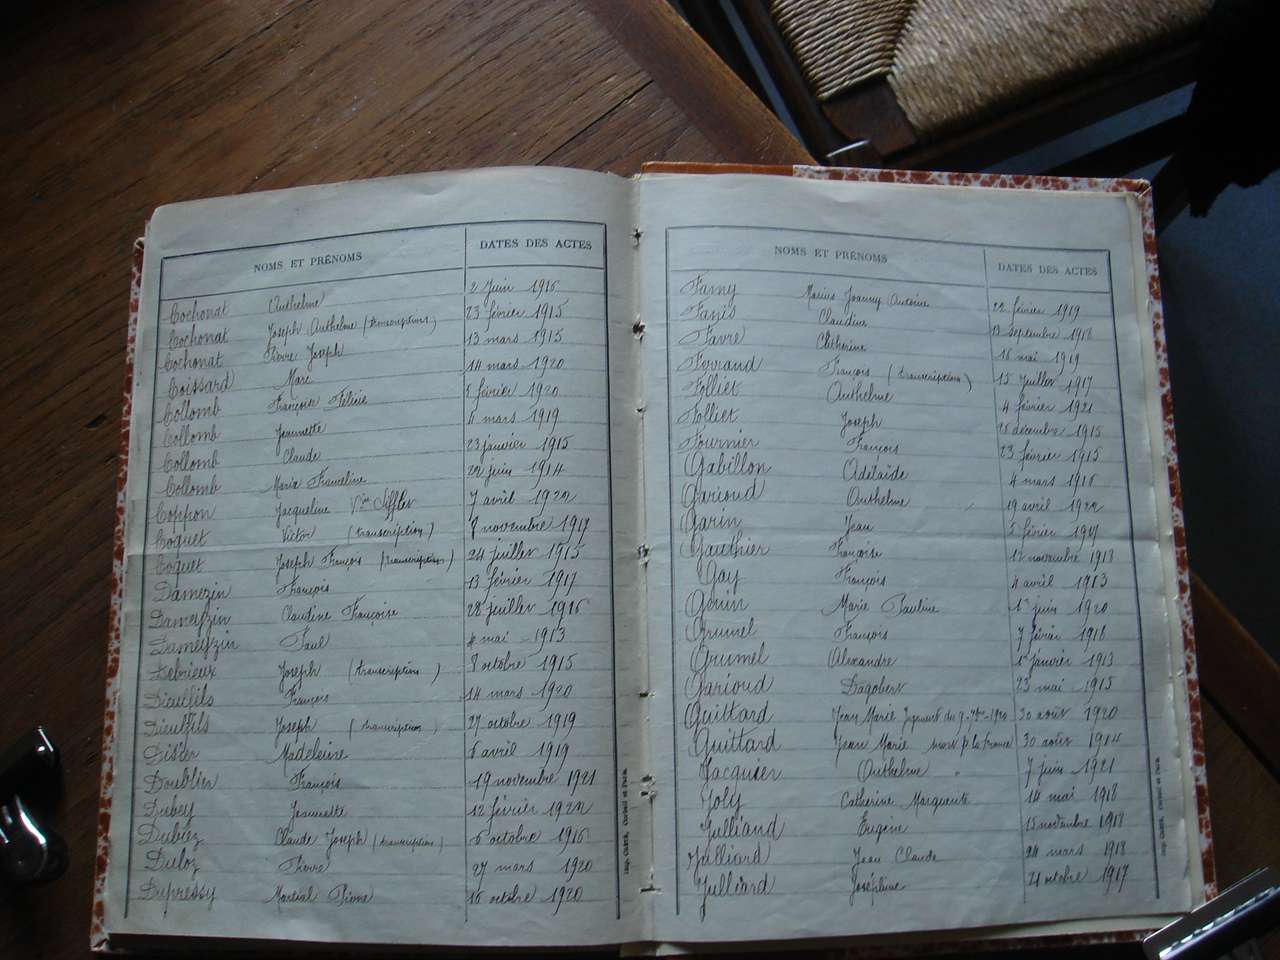 NOMS ET PRÉNOMS DATES DES ACTES
Cochonat Anthelme 2 Juin 1916
Cochonat Joseph Anthelme (transcription) 23 février 1915
Cochonat Pierre Joseph 13 mars 1915
Coissard Marc 14 mars 1920
Collomb Françoise Félicie février 1920
Collomb Jeannette 6 mars 1919
Collomb Claude 23 janvier 1915
Collomb Marie Franceline 22 juin 1914
Coppon Jacqueline Vve 7 avril 1922
Coquet Victor (transcription) 9 novembre 1917
Coquet Joseph François (transcription) 24 juillet 1915
Damezin François 13 février 1917
Dameyzin Claudine Françoise 28 juillet 1916
Dameyzin Paul mai 1913
Debrieux Joseph (transcription) 8 octobre 1915
Dieulfils François 14 mars 1920
Dieulfils Joseph (transcription) 27 octobre 1919
Disier Madeleine 6 avril 1919
Doublier François 19 novembre 1921
Dubey Jeannette 12 février 1922
Dubiez Claude Joseph (transcription) 6 octobre 1916
Duloz Pierre 27 mars 1920
Dupressy Martial Pierre 16 octobre 1920
Imp. Crété, Corbeil et Paris.
NOMS ET PRÉNOMS DATES DES ACTES
Famy Marius Joanny Antoine 22 février 1919
Fazis Claudine 13 septembre 1918
Favre Catherine 16 mai 1919
Ferrand François (transcription) 15 juillet 1917
Folliet Anthelme 4 février 1921
Folliet Joseph 25 décembre 1915
Fournier François 23 février 1915
Gabillon Adélaïde 4 mars 1916
Garioud Anthelme 19 avril 1922
Garin Jean 5 février
Gauthier Françoise 12 novembre 1918
Gay François 4 avril 1913
Gonin Marie Pauline 1er juin 1920
Grumel François 7 février 1918
Grumel Alexandre 1er janvier 1913
Garioud Dagobert 23 mai 1915
Guittard Jean Marie Jugement du 9-7bre-1920 30 août 1920
Guittard Jean Marie mort p la France 30 août 1914
Jacquier Anthelme 7 juin 1921
Joly Catherine Marguerite 14 mai 1918
Julliard Eugène 13 novembre 1918
Julliard Jean Claude 24 mars 1918
Julliard Joséphine 21 octobre 1917
Imp. Crété, Corbeil et Paris.